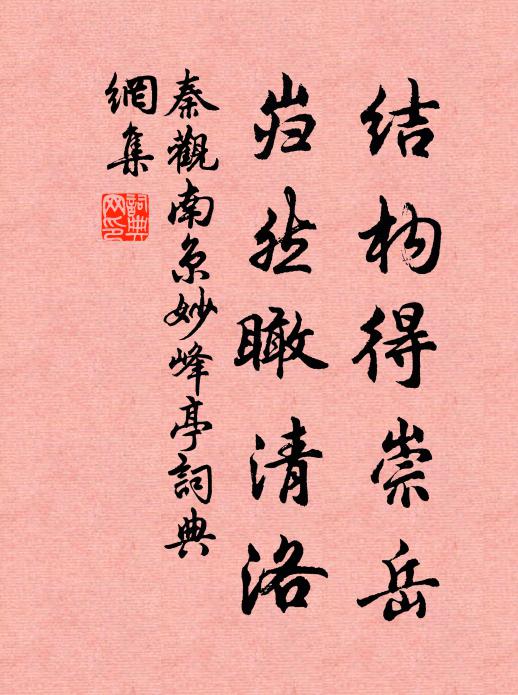 结构得崇岳
岿然瞰清洛
秦觀南京妙峰亭詞典
網集
詞典
网印